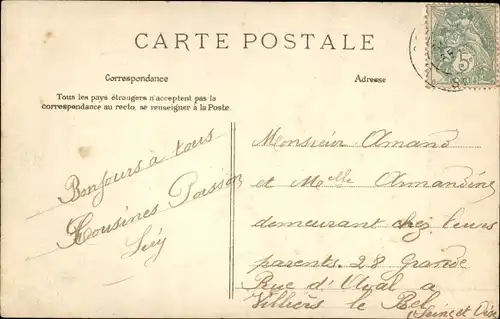 CARTE POSTALE
Correspondance
Adresse
Tous les pays étrangers n'acceptent pas la
correspondance au recto, se renseigner à la Poste.
Bonjours à tous
Cousines Poisson
Monsieur Amand
et Melle Amandine
demeurant chez leurs
parents. 28 Grande
Rue d'
a
Villiers le Bel
(Seine et Oise
5c